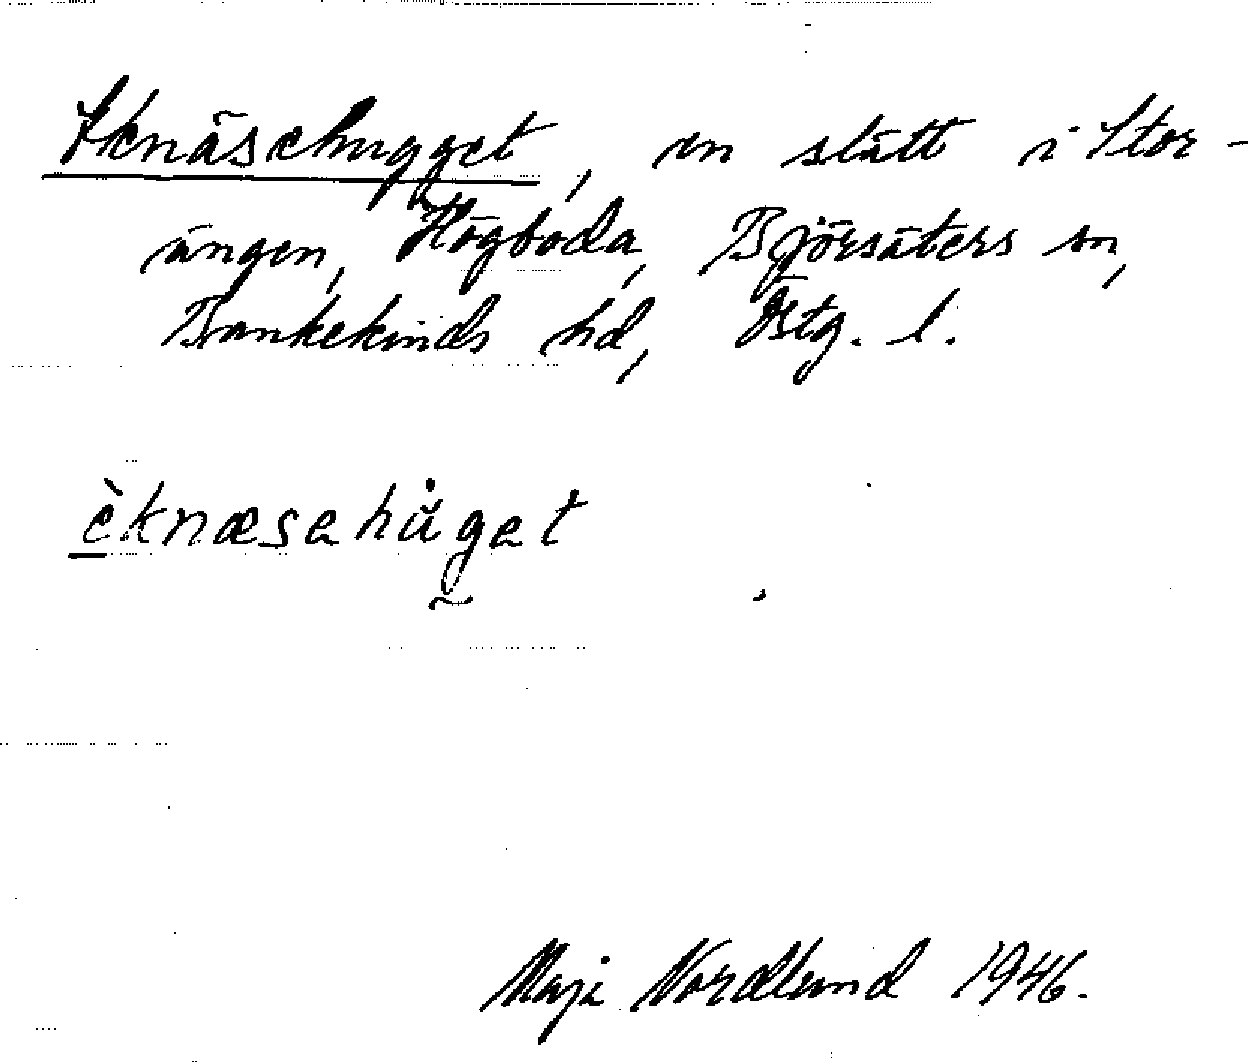 Eknäsehugget, en slått i Stor-
ängen, Högboda, Björsäters sn,
Bankekinds hd, Östg. l.
èknæsehůget
Maji Nordlund 1946.